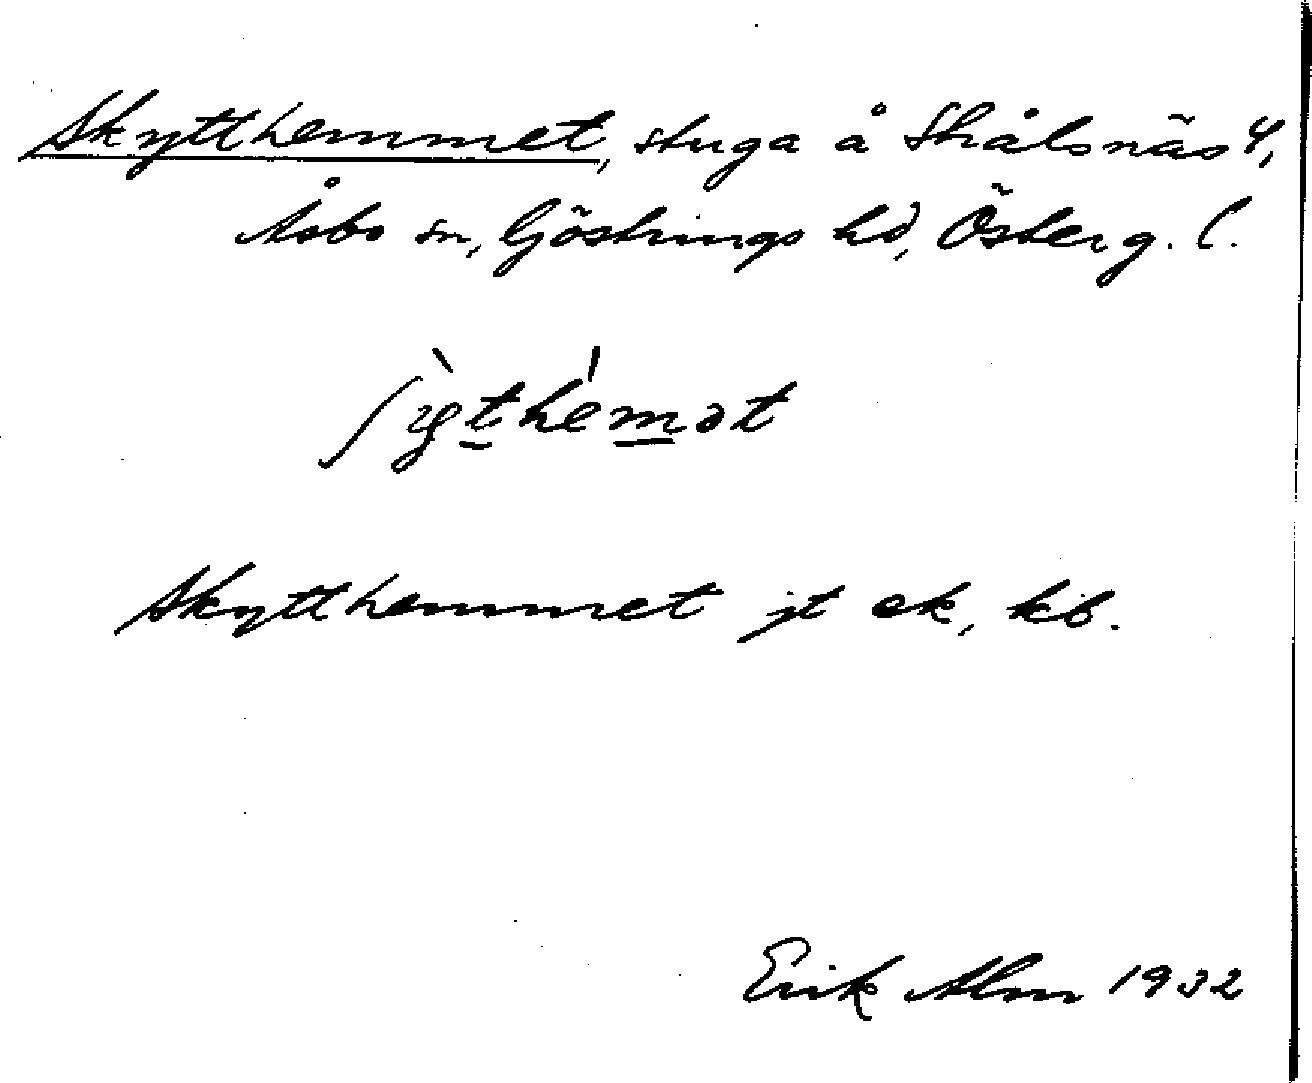 Skytthemmet, stuga å Skålsnäs 4,
Åsbo sn, Göstrings hd, Österg. l.
ʃy̆ìt̲hém̲ət
Skytthemmet jt ek, kb.
Erik Alm 1932